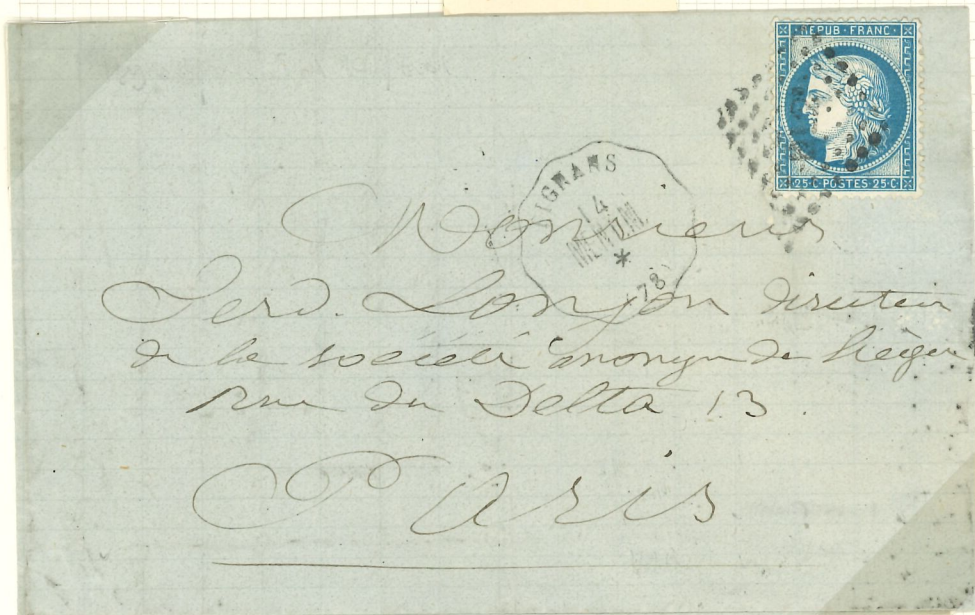 REPUB·FRANC·
25·C·POSTES·25·C
IGNANS
14
78
Monsieur
Ferd. directeur
de la société anonyme de
Rue du Delta 13.
Paris